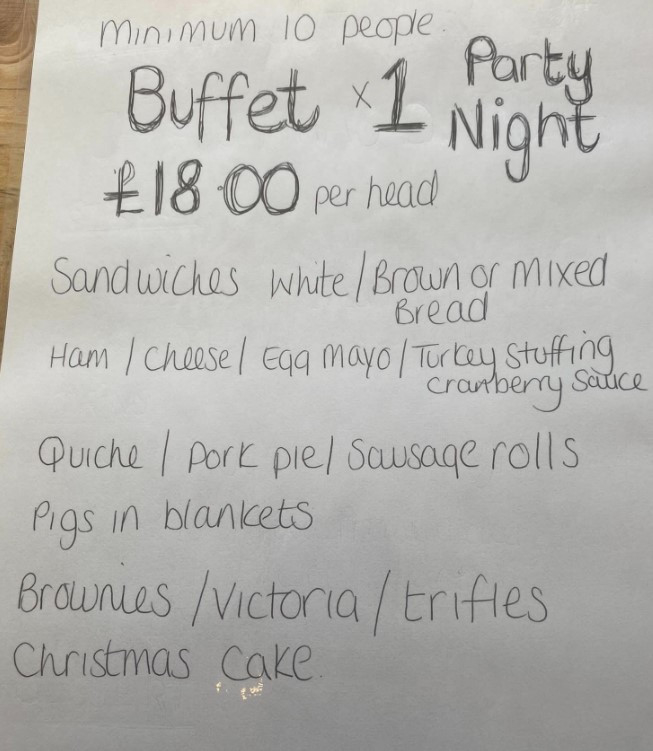 Minimum 10 people.
Buffet x1 Party Night
£18.00 per head
Sandwiches White/Brown or Mixed
Bread
Ham / Cheese / Egg mayo / Turkey Stuffing
cranberry Sauce
Quiche / Pork pie / Sausage rolls
Pigs in blankets
Brownies / Victoria / trifles
Christmas Cake.